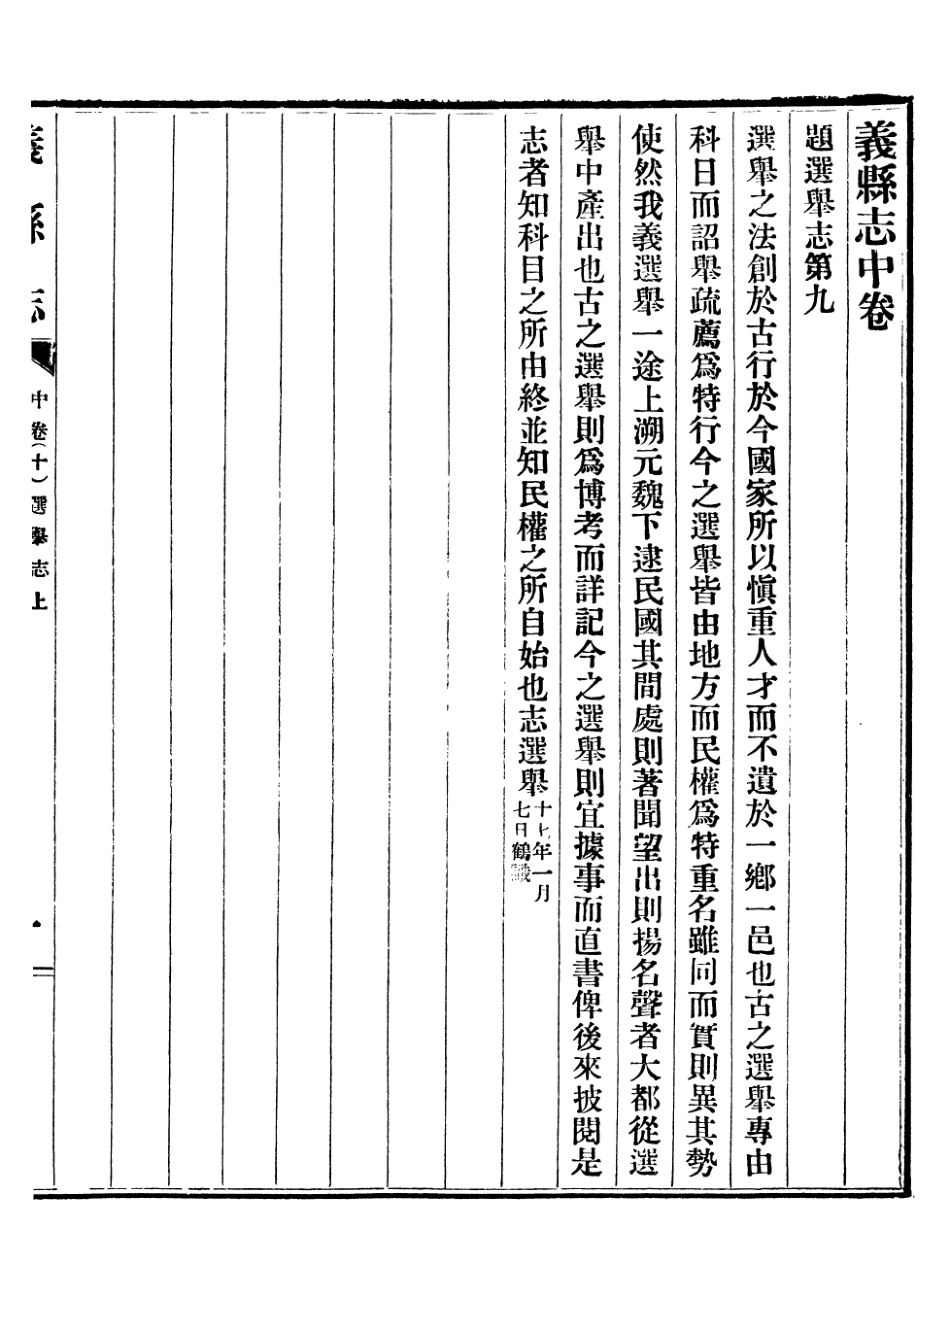 義縣志中卷
題選舉志第九
選舉之法創於古行於今國家所以愼重人才而不遺於一鄉一邑也古之選舉專由
科目而詔舉疏薦爲特行今之選舉皆由地方而民權爲特重名雖同而實則異其勢
使然我義選舉一途上溯元魏下逮民國其間處則著聞望出則揚名聲者大都從選
舉中產出也古之選舉則爲博考而詳記今之選舉則宜據事而直書俾後來披閱是
志者知科目之所由終並知民權之所自始也志選舉
十七年一月
七日鶴識
義縣志
中卷(十)選舉志上
一